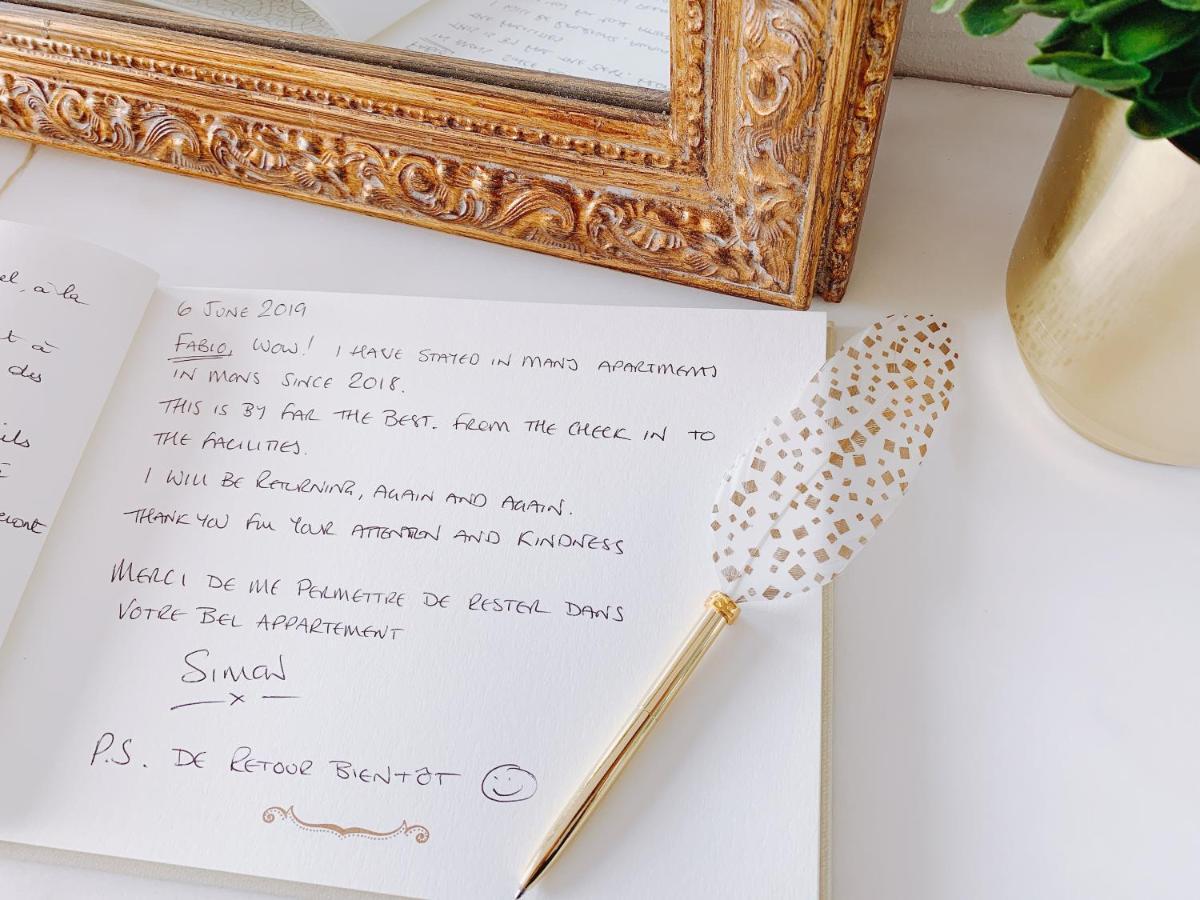 el, à la
t à
des
ils
6 JUNE 2019
FABIO, WOW! I HAVE STAYED IN MANY APARTMENTS
IN MONS SINCE 2018.
THIS IS BY FAR THE BEST. FROM THE CHECK IN TO
THE FACILITIES.
I WILL BE RETURNING, AGAIN AND AGAIN.
THANK YOU FOR YOUR ATTENTION AND KINDNESS
MERCI DE ME PERMETTRE DE RESTER DANS
VOTRE BEL APPARTEMENT
SIMON
x
P.S. DE RETOUR BIENTÔT